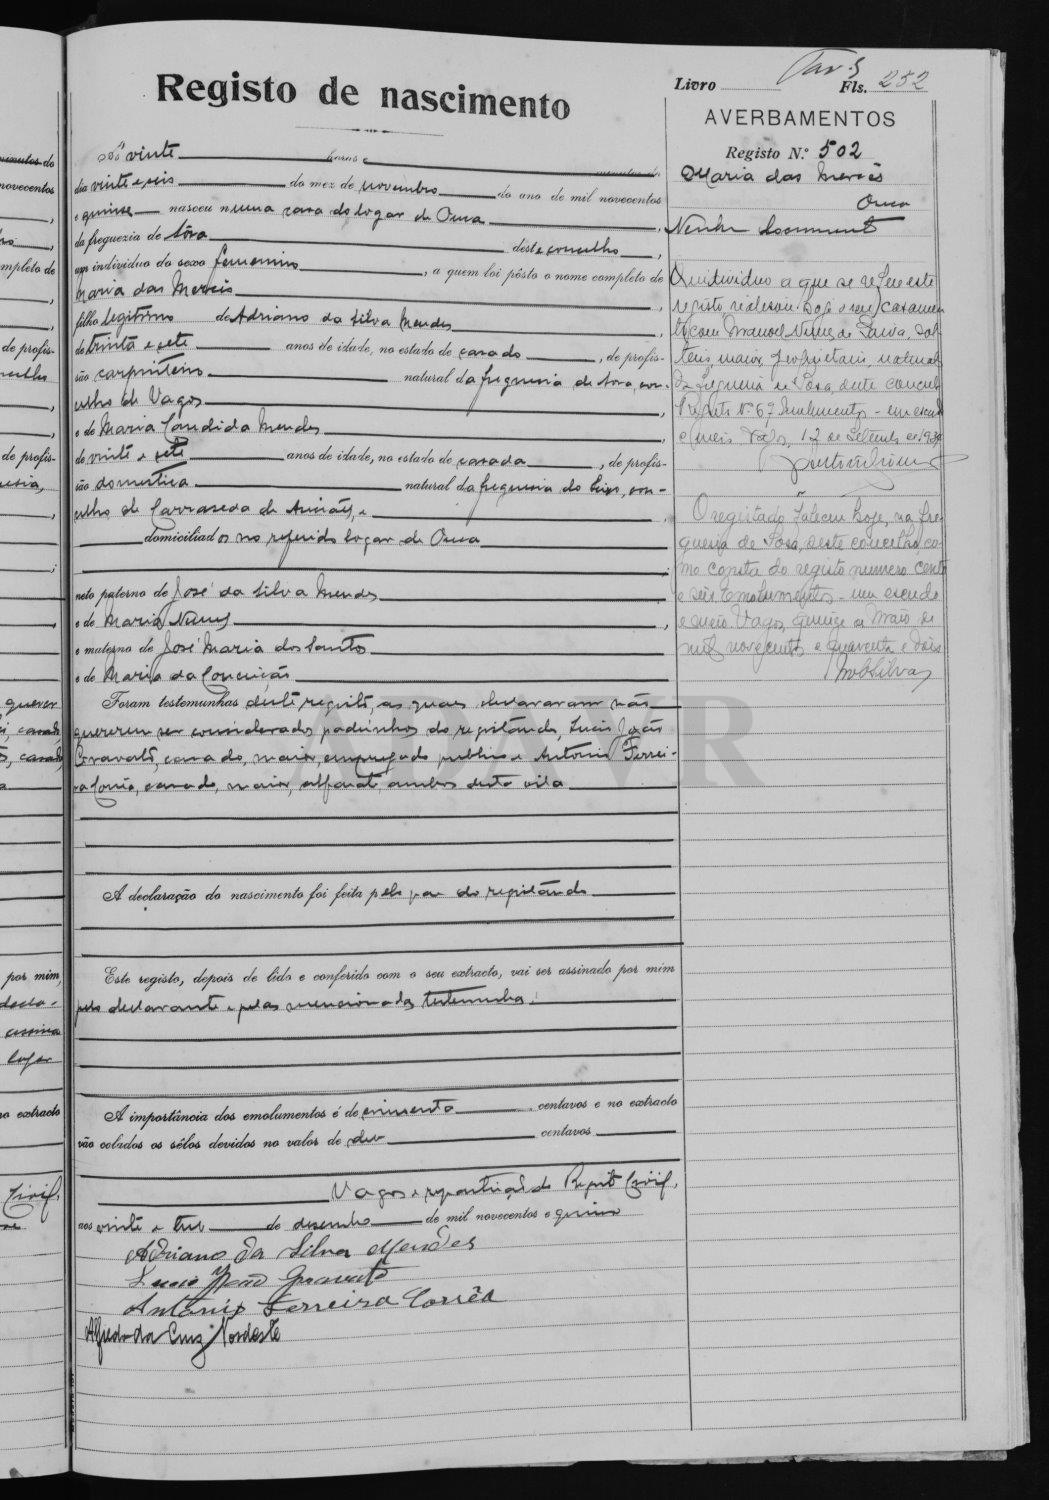 Registo de nascimento
Livro Fls. 252
AVERBAMENTOS
Registo N.º 502
Maria das Mercês
Ouca
Nenhum documento
vinte horas e minutos do
dia vinte e seis do mez de novembro do ano de mil novecentos
e quinze nasceu n uma casa do logar de Ouca,
da freguezia de Sôza deste concelho,
um individuo do sexo femenino, a quem foi pôsto o nome completo de
Maria das Mercês,
filho legitimo de Adriano da Silva Mendes
de trinta e sete anos de idade, no estado de casado, de profis-
são carpinteiro natural da freguesia de Sosa, con-
celho de Vagos,
e de Maria Candida Mendes,
de vinte e sete anos de idade, no estado de casada, de profis-
são domestica natural da freguesia do con-
celho de Carrazeda de Anciães, e
domiciliados no referido logar de Ouca
neto paterno de José da Silva Mendes
e de Maria Nunes,
e materno de José Maria dos Santos
e de Maria da Conceição
Foram testemunhas deste registo, as quaes declararam não
quererem ser considerados padrinhos do registando, Lucio João
Gravato, casado, maior, empregado publico e Antonio Ferrei-
ra Corrêa, casado, maior, alfaiate, ambos desta vila
A declaração do nascimento foi feita pelo pae do registando
Este registo, depois de lido e conferido com o seu extracto, vai ser assinado por mim
pelo declarante e pelas mencionadas testemunhas.
A importância dos emolumentos é de cincoenta centavos e no extracto
vão colados os sêlos devidos no valor de dez centavos
Vagos e repartição do Registo Civil,
aos vinte e tres de dezembro de mil novecentos e quinze
Adriano da Silva Mendes
Lucio João Gravato
Antonio Ferreira Corrêa
Alfredo da Cruz Nordeste
O individuo a que se refere este
registo, realisou hoje o seu casamen
to com Manuel Nunes de Sousa, sol-
teiro, maior, proprietario, natural
da freguesia de Sosa, deste concelho
Registo N.º 67 Emolumentos - um escudo
e meio Vagos, 17 de Setembro de 1939
O registado faleceu hoje, na fre-
guesia de Sosa, deste concelho, co-
mo consta do registo numero cento
e seis Emolumentos - um escudo
e meio. Vagos, quinze de Maio de
mil novecentos e quarenta e dois
ADAVR